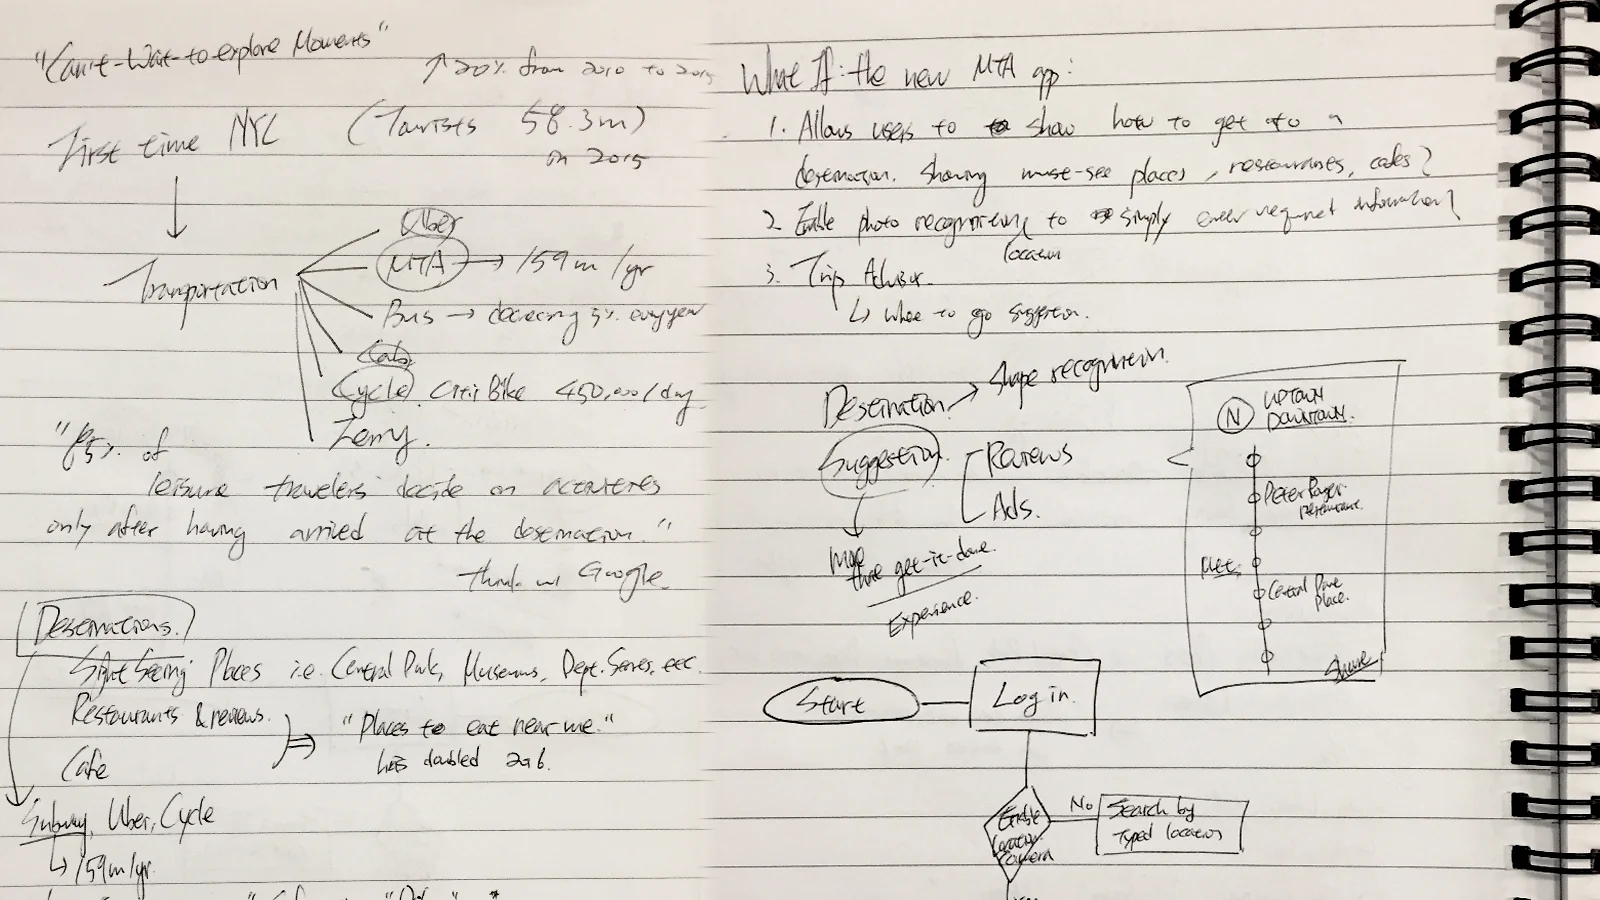 "Can't-Wait-to-explore Moments"
↑ 20% from 2010 to 2015
First time NYC (Tourists 58.3m)
on 2015
Transportation
Uber
MTA → 159m/yr
Bus → decreasing 5% every year
Cab
Cycle Citi Bike 450,000/day
Ferry.
"85% of
leisure travelers decide on activities
only after having arrived at the destination."
Think w/ Google
Destinations.
Sight Seeing Places i.e. Central Park, Museums, Dept. Stores, etc.
Restaurants & reviews.
Cafe
⇒ "Places to eat near me."
has doubled
Subway, Uber, Cycle
↳ 159m/yr.
What If: the new MTA app:
1. Allows users to show how to get to a
destination. Showing must-see places, restaurants, cafes?
2. Enable photo recognizing to simply enter required information?
location
3. Trip Advisor.
↳ where to go suggestion.
Destination → Shape recognition.
Suggestion.
Reviews
Ads.
more
than get-it-done.
Experience.
N UPTOWN
DOWNTOWN.
Peter Pager
Met.
Central Park
Place.
Share
Start
Log in.
Enable
location
Camera
No
Search by
Typed location